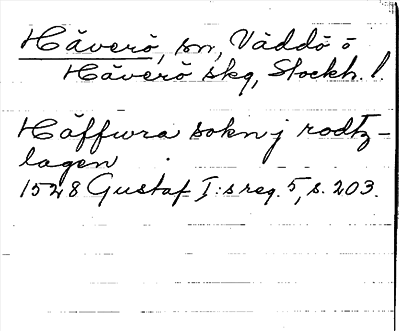 Häverö, sn, Väddö o
Häverö skg, Stockh. l.
Häffwra sokn j rodtz-
lagen
1528 Gustaf I:s reg. 5, s. 203.